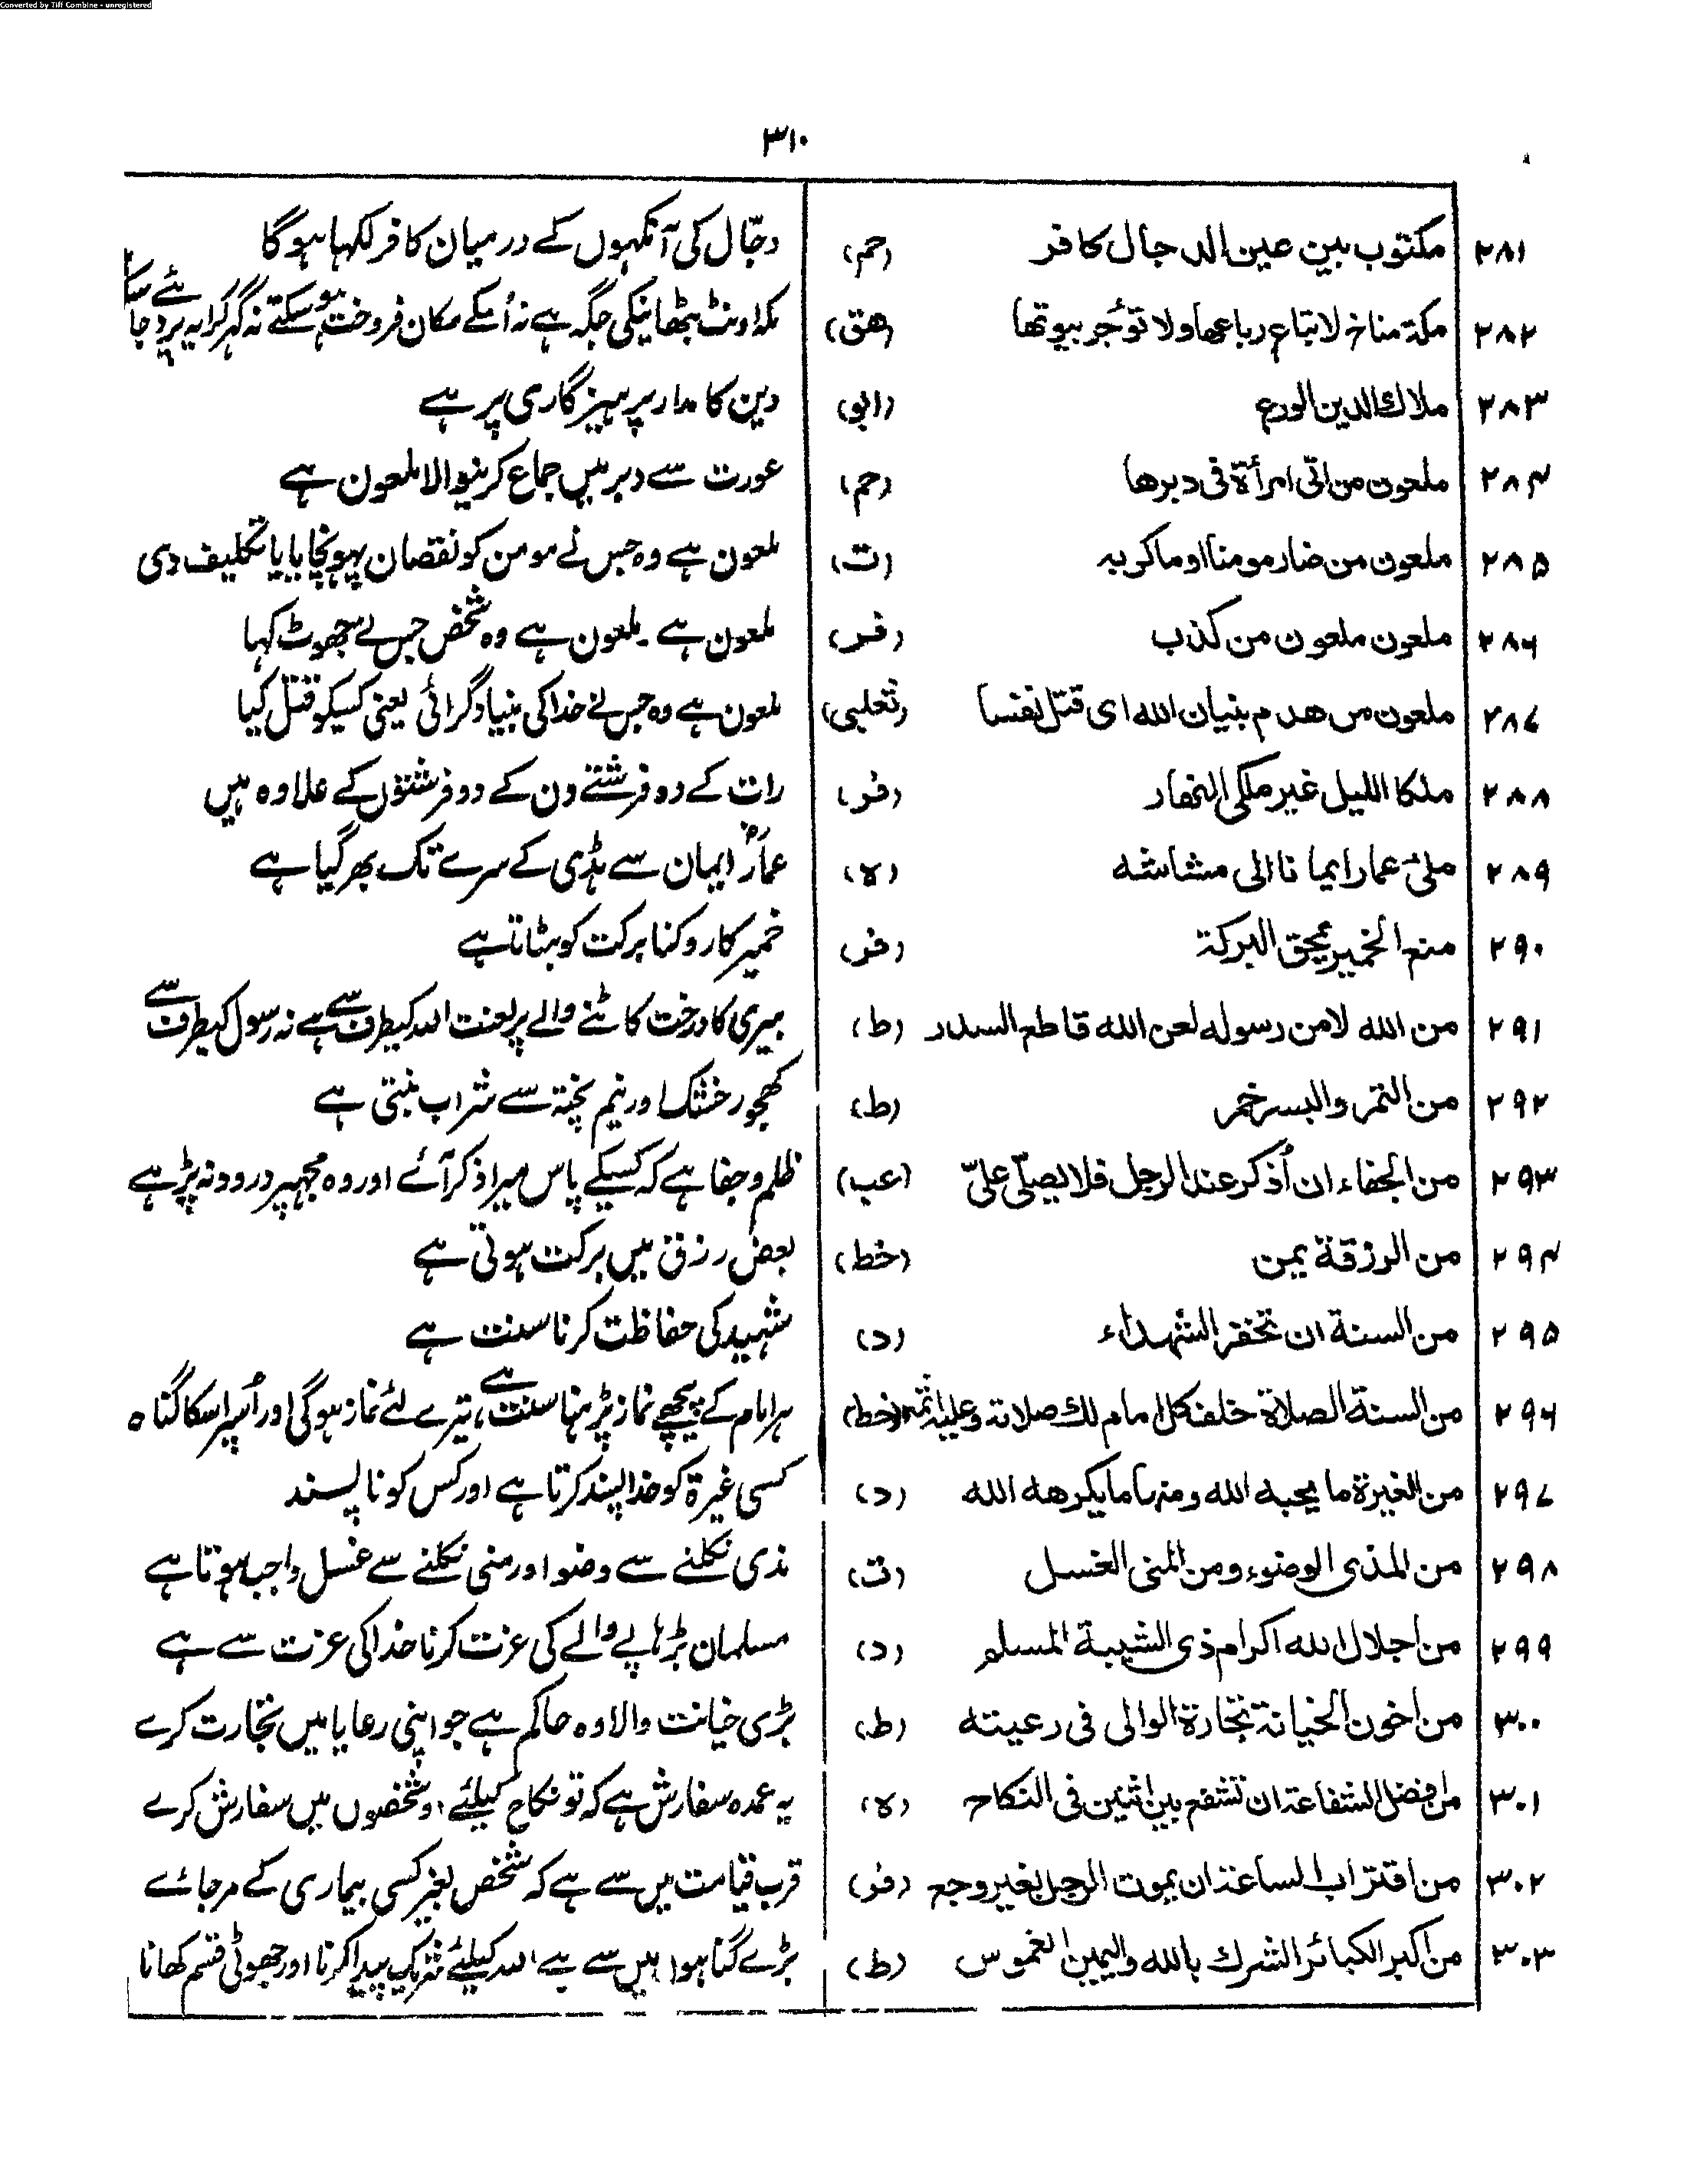 Converted by Tiff Combine - unregistered
۳۱۰
۲۸۱ مکتوب بین عین الدجال کافر (حم) دجّال کی آنکہوں کے درمیان کافر لکہا ہوگا
۲۸۲ مکة مناخ لا تباع رباعها ولا تؤجر بیوتها (هق) مکہ اونٹ بٹھانیکی جگہ ہے نہ اُسکے مکان فروخت ہو سکتے نہ گہر کرایہ پر دئے جا سکتے
۲۸۳ ملاك الدین الورع (ابو) دین کا مدار پرہیزگاری پر ہے
۲۸۴ ملعون من اتی امرأة فی دبرها (حم) عورت سے دبر میں جماع کرنیوالا ملعون ہے
۲۸۵ ملعون من ضار مومنا او ماکر به (ت) ملعون ہے وہ جس نے مومن کو نقصان پہونچایا یا تکلیف دی
۲۸۶ ملعون ملعون من کذب (فر) ملعون ہے ۔ ملعون ہے وہ شخص جس نے جھوٹ کہا
۲۸۷ ملعون من هدم بنیان الله ای قتل نفسا (ثعلبی) ملعون ہے وہ جس نے خدا کی بنیاد گرائی یعنی کسیکو قتل کیا
۲۸۸ ملکا اللیل غیر ملکی النهار (فر) رات کے دو فرشتے دن کے دو فرشتوں کے علاوہ ہیں
۲۸۹ ملئ عمار ایمانا الی مشاشه (ہ) عمارؓ ایمان سے ہڈی کے سرے تک بھر گیا ہے
۲۹۰ منع الخمیر یمحق البرکة (فر) خمیر کا روکنا برکت کو مٹاتا ہے
۲۹۱ من الله لا من رسوله لعن الله قاطع السدر (ط) بیری کا درخت کاٹنے والے پر لعنت اللہ کیطرف سے ہے نہ رسول کیطرف سے
۲۹۲ من التمر والبسر خمر (ط) کھجور خشک اور نیم پختہ سے شراب بنتی ہے
۲۹۳ من الجفاء ان اُذکر عند الرجل فلا یصلّی علیّ (عب) ظلم و جفا ہے کہ کسیکے پاس میرا ذکر آئے اور وہ مجہپر درود نہ پڑہے
۲۹۴ من الرزقة یمن (خط) بعض رزق میں برکت ہوتی ہے
۲۹۵ من السنة ان تخفر الشهداء (د) شہید کی حفاظت کرنا سنت ہے
۲۹۶ من السنة الصلاة خلف کل امام لك صلاته وعلیه اثمه (خط) ہر امام کے پیچھے نماز پڑہنا سنت ہے، تیرے لئے نماز ہوگی اور اُسپر اسکا گناہ
۲۹۷ من الغیرة ما یحبه الله ومنها ما یکرهه الله (د) کسی غیرة کو خدا پسند کرتا ہے اور کس کو ناپسند
۲۹۸ من المذی الوضوء ومن المنی الغسل (ت) مذی نکلنے سے وضو اور منی نکلنے سے غسل واجب ہوتا ہے
۲۹۹ من اجلال الله اکرام ذی الشیبة المسلم (د) مسلمان بڑہاپے والے کی عزت کرنا خدا کی عزت سے ہے
۳۰۰ من اخون الخیانة تجارة الوالی فی رعیته (ط) بڑی خیانت والا وہ حاکم ہے جو اپنی رعایا میں تجارت کرے
۳۰۱ من افضل الشفاعة ان تشفع بین اثنین فی النکاح (ہ) یہ عمدہ سفارش ہے کہ تو نکاح کیلئے دو شخصوں میں سفارش کرے
۳۰۲ من اقتراب الساعة ان یموت الرجل بغیر وجع (فر) قرب قیامت میں سے ہے کہ شخص بغیر کسی بیماری کے مرجائے
۳۰۳ من اکبر الکبائر الشرك بالله والیمین الغموس (ط) بڑے گناہوں میں سے ہے اللہ کیلئے شریک پیدا کرنا اور جھوٹی قسم کھانا